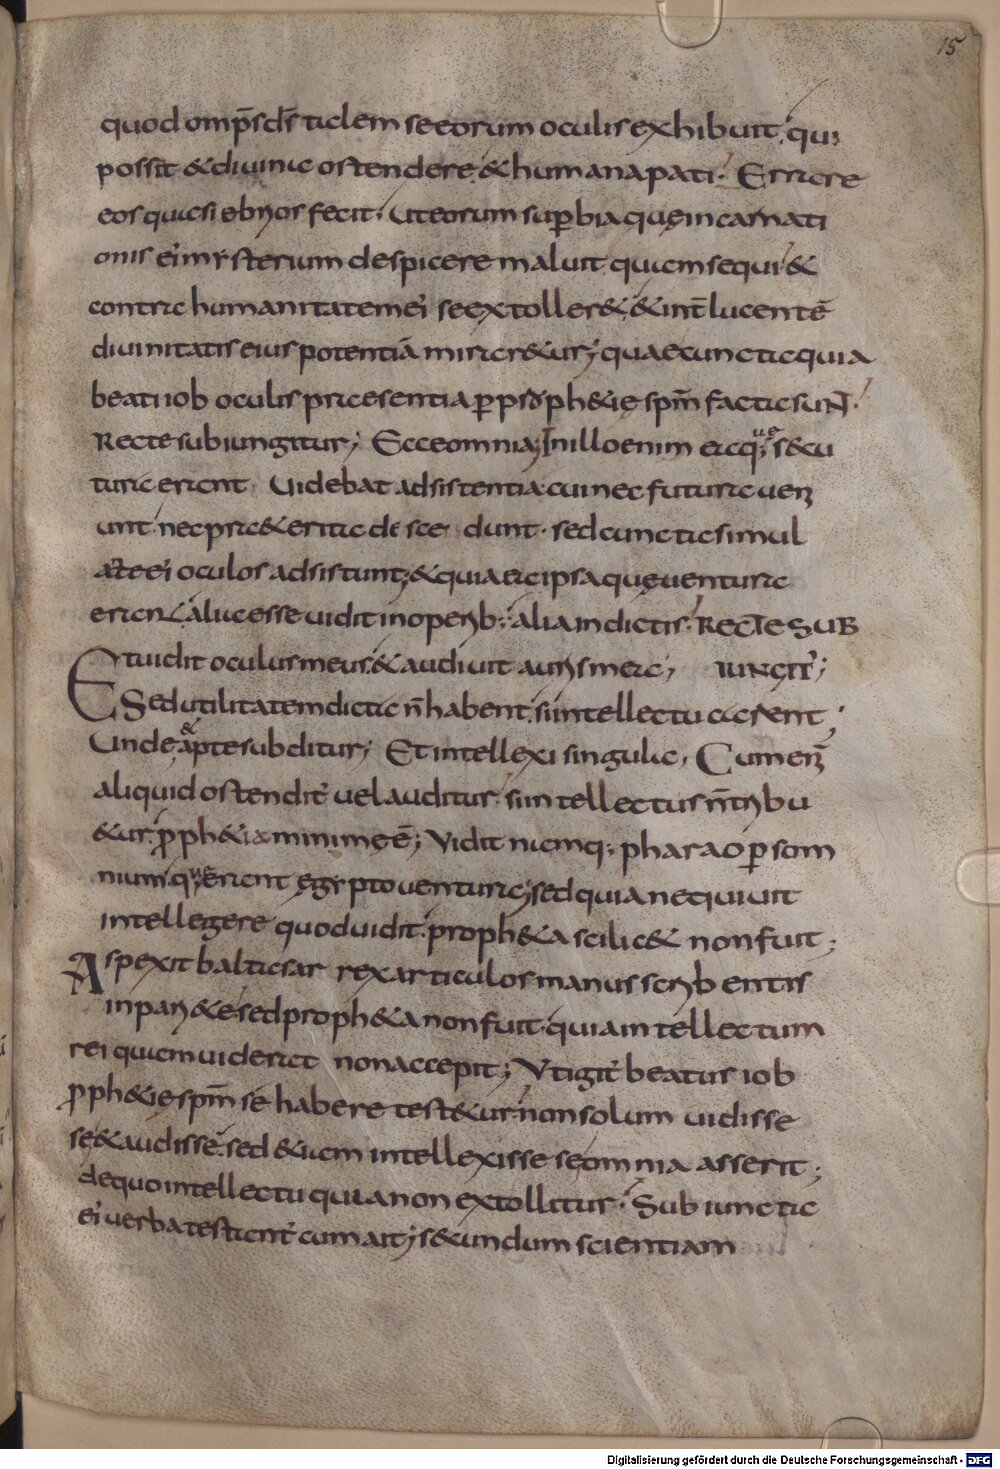 15
quod omp̄s d̄s talem se eorum oculis exhibuit, qui
possit & divina ostendere, & humana pati. Errare
eos quasi ebrios fecit. Ut eorum superbia quę incarnati
onis ei' mysterium despicere maluit quam sequi &
contra humanitatem ei' se extoller& & int̄ lucentē
divinitatis eius potentiā mirar&ur; quae cuncta quia
beati iob oculis praesentia ꝑ ꝓph&ię sp̄m facta suN̄.
Recte subiungitur; Ecce omnia; In illo enim eaq; quę s&cu
tura erant. Videbat adsistentia cui nec futura ueni
unt. nec pr&erita discedunt. sed cuncta simul
ante ei' oculos adsistunt; & quia ea ipsa quę uentura
erant alia esse uidit in operib; alia in dictis. RECTE SUB
Et uidit oculus meus, & audiuit auris mea; IUNGIT̄;
Sed utilitatem dicta n̄ habent. si intellectu carent;
Unde & apte subditur; Et intellexi singula, Cum eni̅
aliquid ostendit̄ uel auditur. si intellectus n̄ tribu
&ur. ꝓph&ia minimę ē; Vidit namq; pharao ꝑ som
nium quę erant egypto uentura; sed quia nequiuit
intellegere quod uidit. proph&a scilic& non fuit;
Aspexit baltasar rex articulos manus scribentis
in pari&e. sed proph&a non fuit. quia intellectum
rei quam uiderat non accepit; Ut igit̄ beatus iob
ꝓph&ię sp̄m se habere test&ur. non solum uidisse
se & audisse. sed &iam intellexisse se omnia asserit;
de quo intellectu quia non extollitur. Subiuncta
ei' uerba testant̄ cum ait; s&cundum scientiam
Digitalisierung gefördert durch die Deutsche Forschungsgemeinschaft - DFG